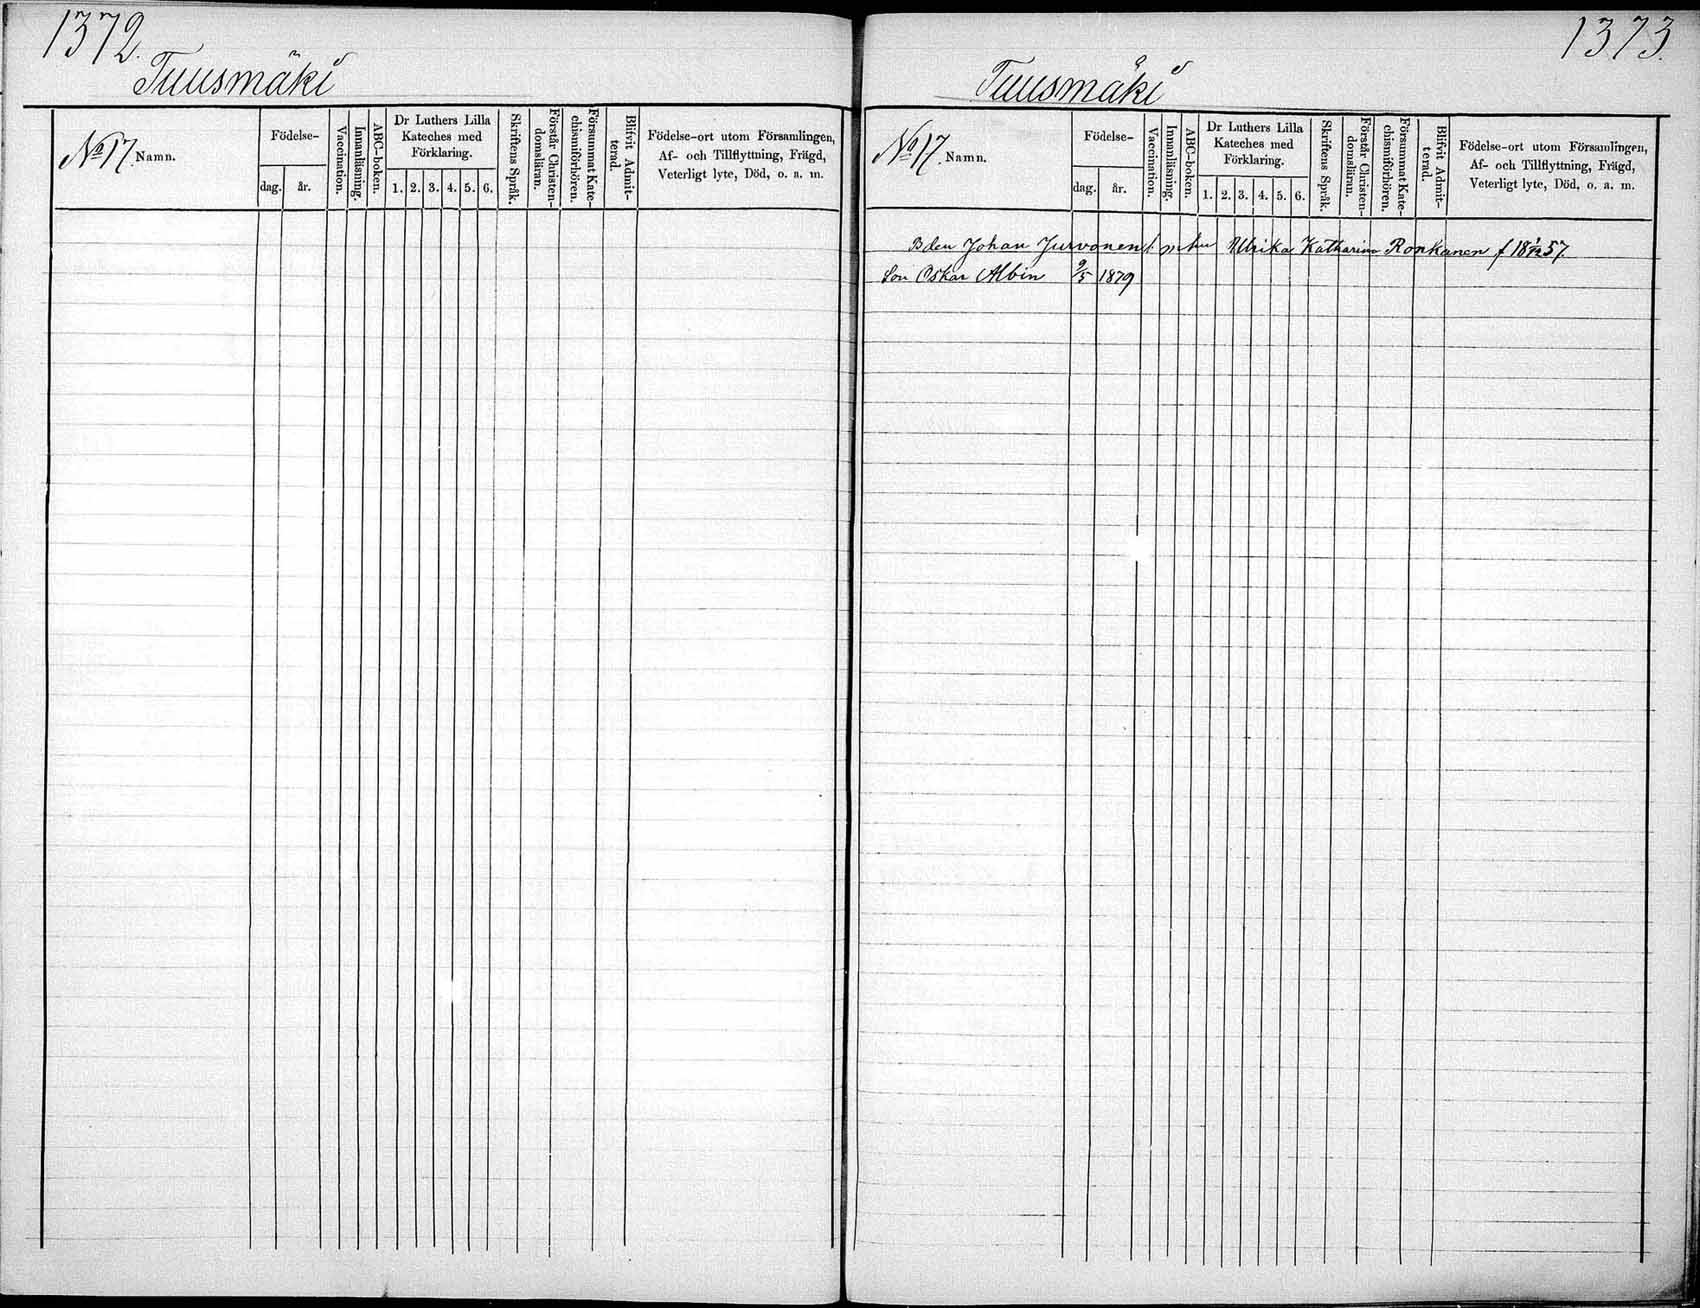 1372.
Tuusmäki
No 17. Namn.
Födelse-
dag.
år.
Vaccination.
Innanläsning.
ABC-boken.
Dr Luthers Lilla
Kateches med
Förklaring.
1. 2. 3. 4. 5. 6.
Skriftens Språk.
Förstår Christen-
domsläran.
Försummat Kate-
chismiförhören.
Blifvit Admit-
terad.
Födelse-ort utom Församlingen,
Af- och Tillflyttning, Frägd,
Veterligt lyte, Död, o. a. m.
1373.
Tuusmäki
No 17. Namn.
Födelse-
dag.
år.
Vaccination.
Innanläsning.
ABC-boken.
Dr Luthers Lilla
Kateches med
Förklaring.
1. 2. 3. 4. 5. 6.
Skriftens Språk.
Förstår Christen-
domsläran.
Försummat Kate-
chismiförhören.
Blifvit Admit-
terad.
Födelse-ort utom Församlingen,
Af- och Tillflyttning, Frägd,
Veterligt lyte, Död, o. a. m.
Bden Johan Jurvonen Ulrika Katharina Ronkanen f 18 1/12 57.
Son Oskar Albin 9/5 1879